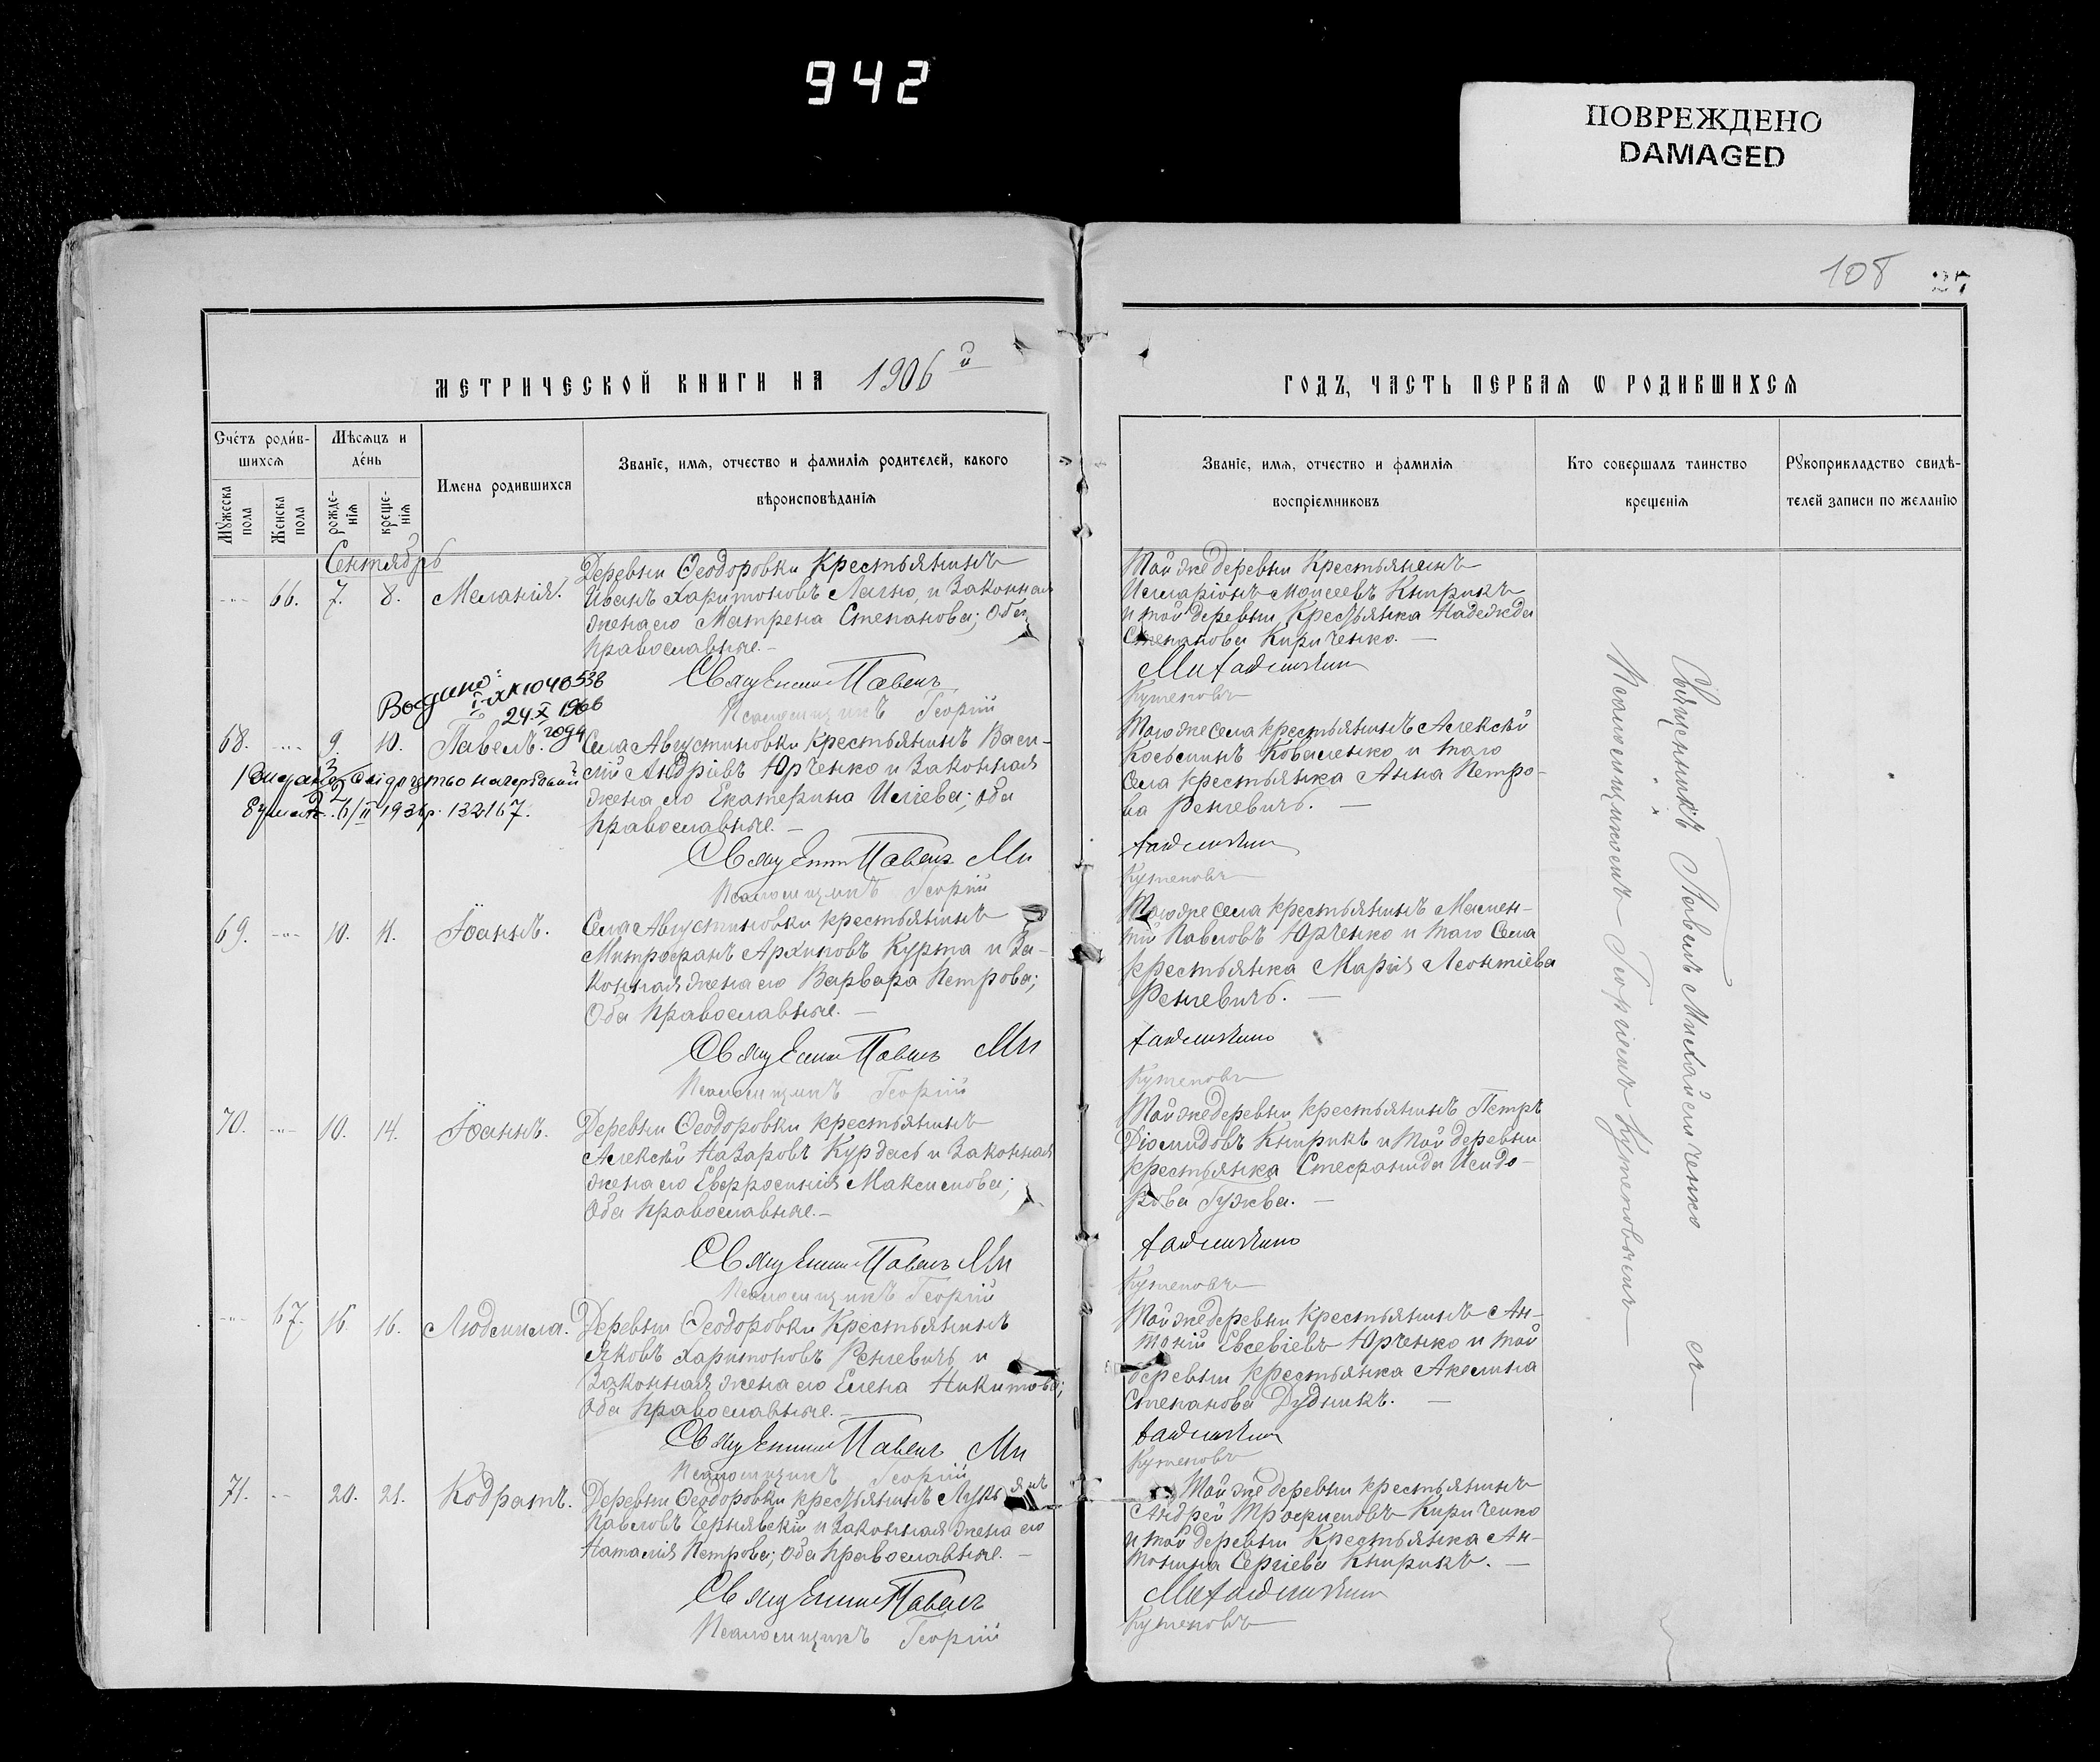 942
ПОВРЕЖДЕНО
DAMAGED
108
27
МЕТРИЧЕСКОЙ КНИГИ НА 1906 й
ГОДЪ, ЧАСТЬ ПЕРВАЯ Ѡ РОДИВШИХСЯ
Сче́тъ роди́в-
шихся
Мужеска пола
Женска пола
Мѣсяцъ и
де́нь
рожде-
нія
креще-
нія
Имена родившихся
Званіе, имя, отчество и фамилія родителей, какого
вѣроисповѣданія
Званіе, имя, отчество и фамилія
воспріемниковъ
Кто совершалъ таинство
крещенія
Рукоприкладство свидѣ-
телей записи по желанію
Сентябрь
66. 7. 8. Меланія.
Деревни Ѳеодоровки крестьянинъ
Иванъ Харитоновъ Лагно, и законная
жена его Матрена Степанова; оба
православные.
Священникъ Павелъ
Псаломщикъ Георгій
Той же деревни крестьянинъ
Илларіонъ Моисеевъ Кнырикъ
и той деревни крестьянка Надежда
Степанова Кириченко.
Михайличенко
Кутеповъ
24.X 1966
года
68. 9. 10. Павелъ.
132167.
Села Августиновки крестьянинъ Васи-
лій Андріевъ Юрченко и законная
жена его Екатерина Иліева; оба
православные.
Священникъ Павелъ Ми
Псаломщикъ Георгій
Того же села крестьянинъ Алексѣй
Косьминъ Коваленко и того
села крестьянка Анна Петро-
ва Реневичъ.
хайличенко
Кутеповъ
69. 10. 11. Іоаннъ.
Села Августиновки крестьянинъ
Митрофанъ Архиповъ Курта и за-
конная жена его Варвара Петрова;
оба православные.
Священникъ Павелъ Ми
Псаломщикъ Георгій
Того же села крестьянинъ Мелен-
тій Павловъ Юрченко и того села
крестьянка Марія Леонтіева
Реневичъ.
хайличенко
Кутеповъ
70. 10. 14. Іоаннъ.
Деревни Ѳеодоровки крестьянинъ
Алексѣй Назаровъ Курдась и законная
жена его Евфросинія Максимова;
оба православные.
Священникъ Павелъ Ми
Псаломщикъ Георгій
Той же деревни крестьянинъ Петръ
Діомидовъ Кнырикъ и той деревни
крестьянка Стефанида Исидо-
рова Гужва.
хайличенко
Кутеповъ
67. 15. 16. Людмила.
Деревни Ѳеодоровки крестьянинъ
Яковъ Харитоновъ Реневичъ и
законная жена его Елена Никитова;
оба православные.
Священникъ Павелъ Ми
Псаломщикъ Георгій
Той же деревни крестьянинъ Ан-
тоній Евсевіевъ Юрченко и той
деревни крестьянка Акелина
Степанова Дудникъ.
хайличенко
Кутеповъ
71. 20. 21. Кодратъ.
Деревни Ѳеодоровки крестьянинъ Лукьянъ
Павловъ Чернявскій и законная жена его
Наталія Петрова; оба православные.
Священникъ Павелъ
Псаломщикъ Георгій
Той же деревни крестьянинъ
Андрей Трофимовъ Кириченко
и той деревни крестьянка Ан-
тонина Сергіева Кнырикъ.
Михайличенко
Кутеповъ
Священникъ Павелъ Михайличенко съ
Псаломщикомъ Георгіемъ Кутеповымъ